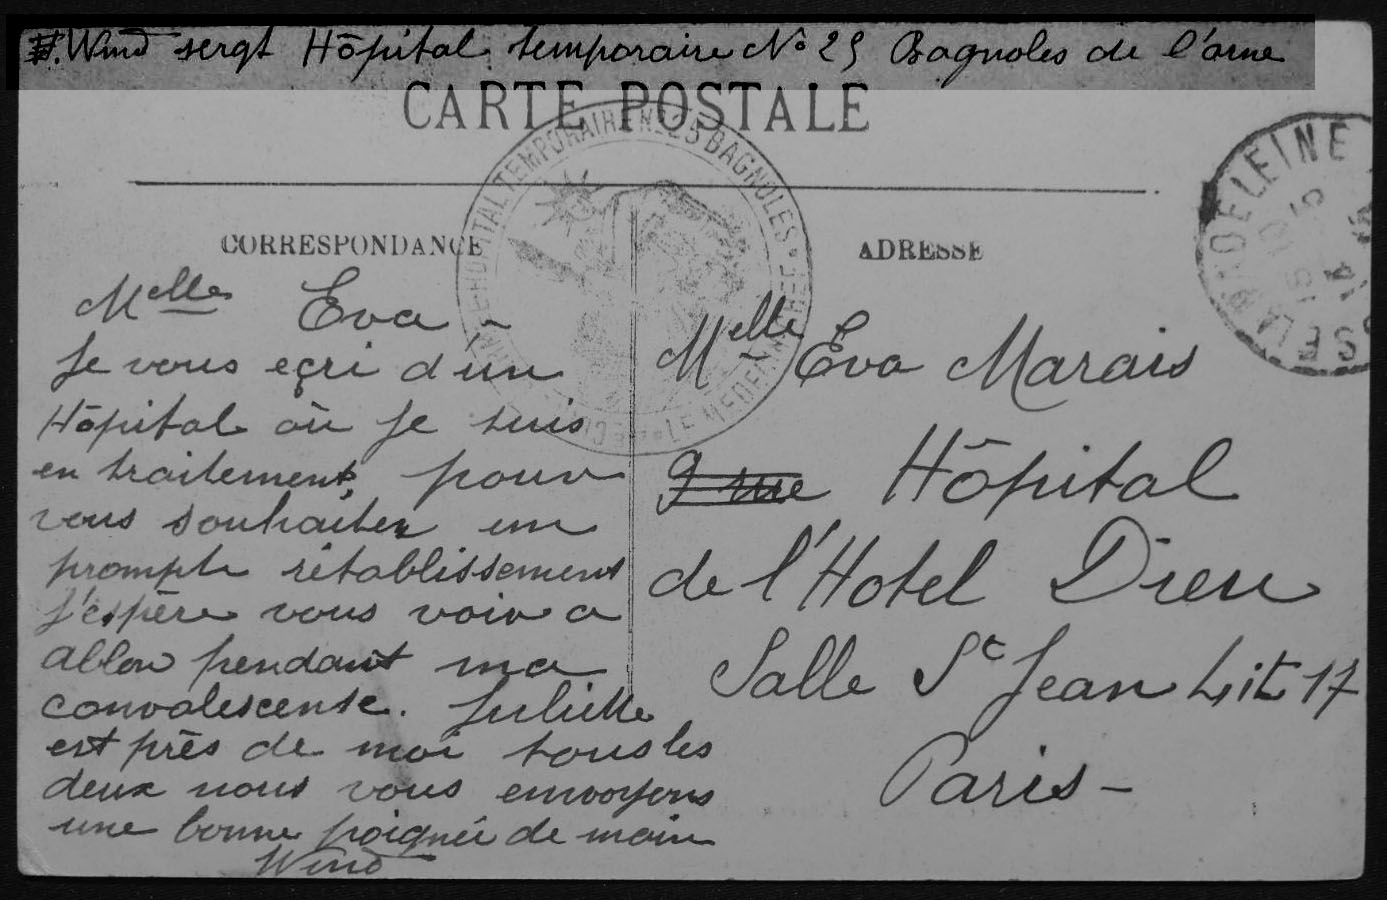 Wind sergt Hôpital temporaire No 25 Bagnoles de l'orne
CARTE POSTALE
HOPITAL TEMPORAIRE No 25 BAGNOLES
LE MEDECIN
DELEINE
CORRESPONDANCE
Melle Eva -
Je vous eçri d'un
Hôpital où je suis
en traitement, pour
vous souhaiter un
prompte rétablissement
J'espère vous voir a
ablon pendant ma
convalescense. Juliette
est près de moi tous les
deux nous vous envoyons
une bonne poignée de main
Wind
ADRESSE
Melle Eva Marais
9 rue Hôpital
de l'Hotel Dieu
Salle St Jean Lit 17
Paris -